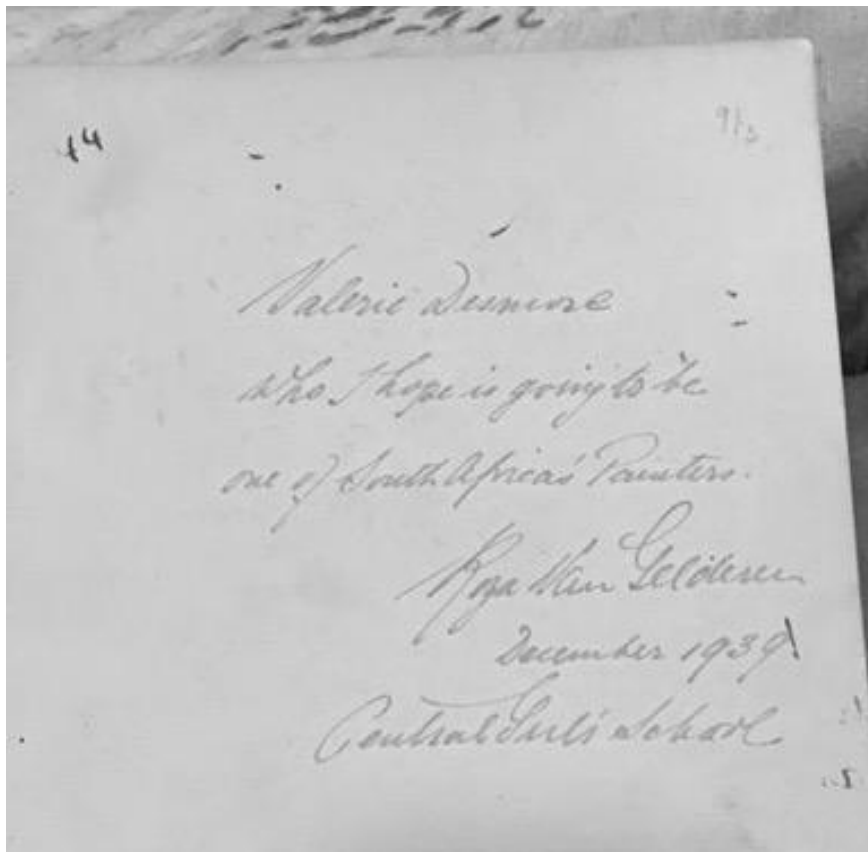 14
9/3
Valerie Desmore
who I hope is going to be
one of South Africa's Painters.
Roza Van Gelderen
December 1939
Central Girls' School